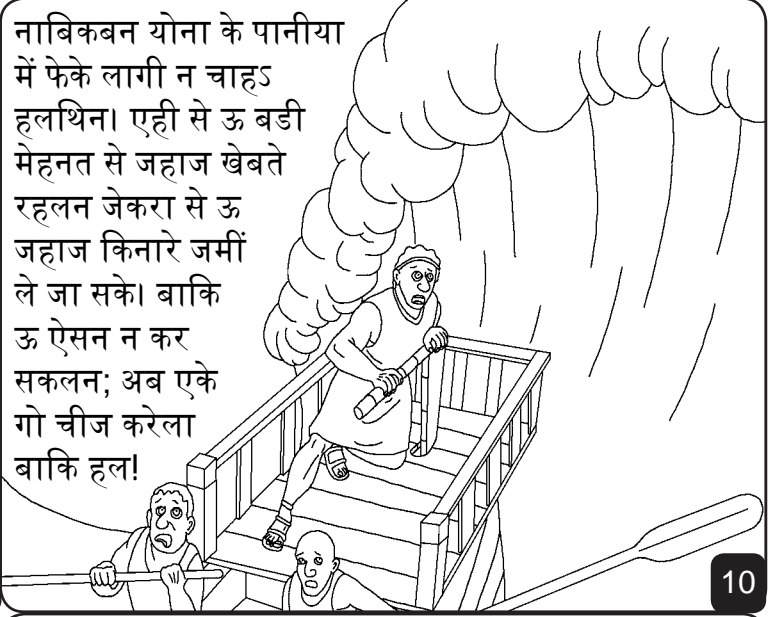 नाबिकबन योना के पानीया
में फेके लागी न चाहऽ
हलथिन। एही से ऊ बडी
मेहनत से जहाज खेबते
रहलन जेकरा से ऊ
जहाज किनारे जमीं
ले जा सके। बाकि
ऊ ऐसन न कर
सकलन; अब एके
गो चीज करेला
बाकि हल!
10